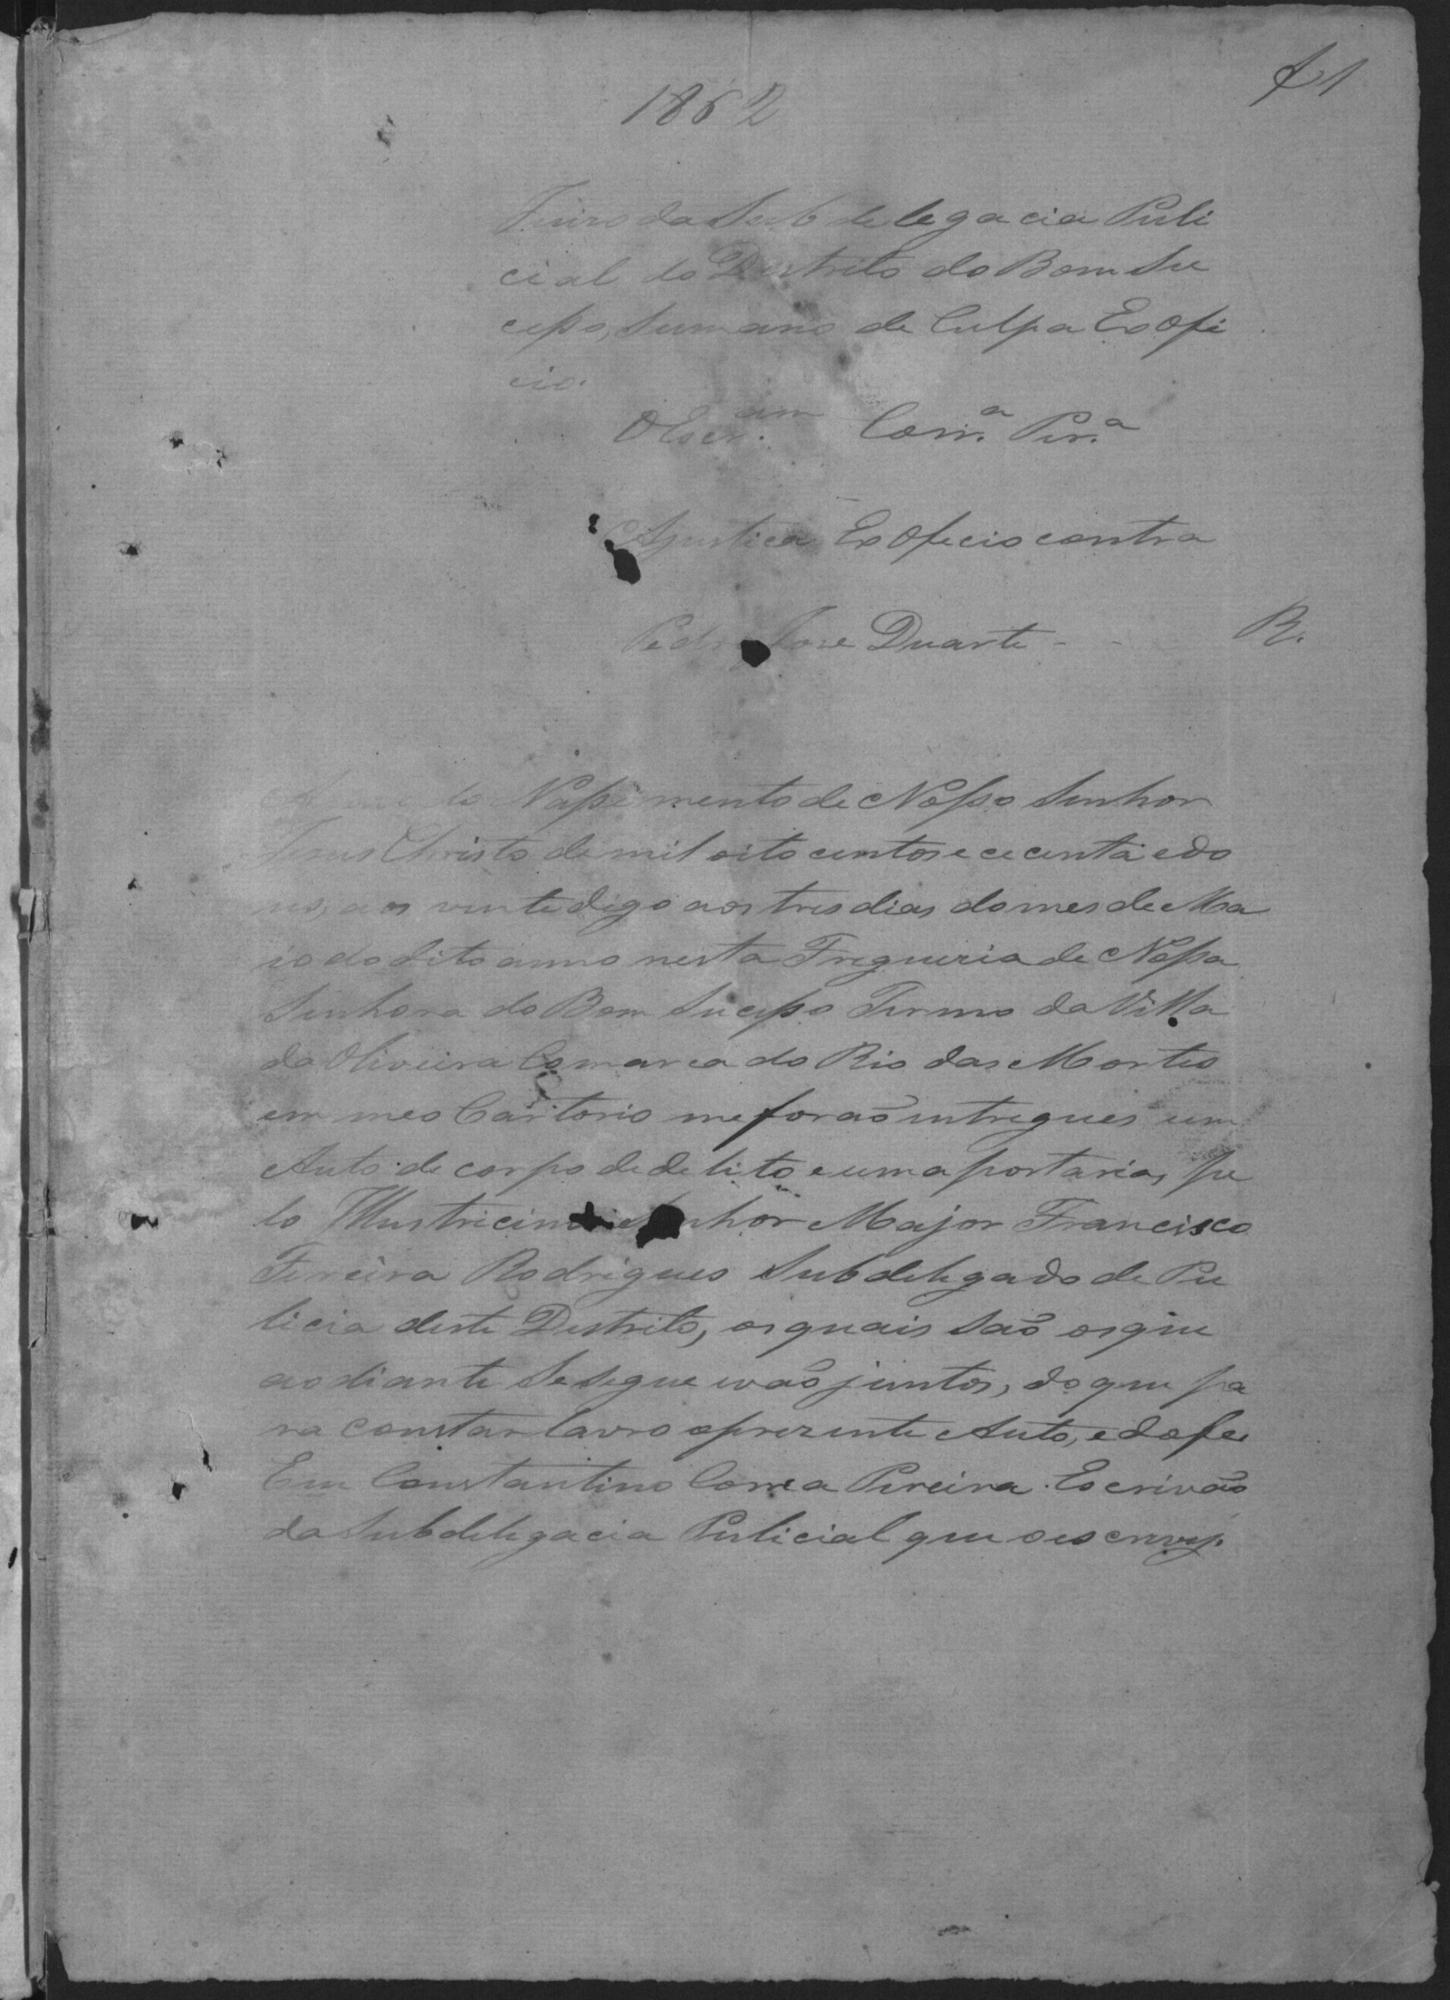 f 1
1862
Juizo da Subdelegacia Puli
cial do Destrito do Bom Su
cesso, Sumario de Culpa Ex Ofi
cio.
O Escr.am Corr.a Per.a
A Justica Ex Oficio contra
Pedro Jose Duarte - - R.
Anno do Nassimento de Nosso Senhor
Jesus Christo de mil oito centos e cecenta e do
us, aos vinte digo aos tres dias do mes de Ma
io do dito anno nesta Freguezia de Nossa
Senhora do Bom Sucesso Termo da Villa
da Oliveira Comarca do Rio das Mortes
em meo Cartorio me forão intregues um
Auto de corpo de delito e uma portaria, pe
lo Illustricimo Senhor Major Francisco
Ferreira Rodrigues Subdelegado de Pu
licia deste Destrito, os quais são os que
ao diante se segue vão juntos, do que pa
ra constar lavro o prezente Auto, e dou fee
Eu Constantino Correa Pereira Escrivão
da Subdelegacia Pulicial que o escrevy.